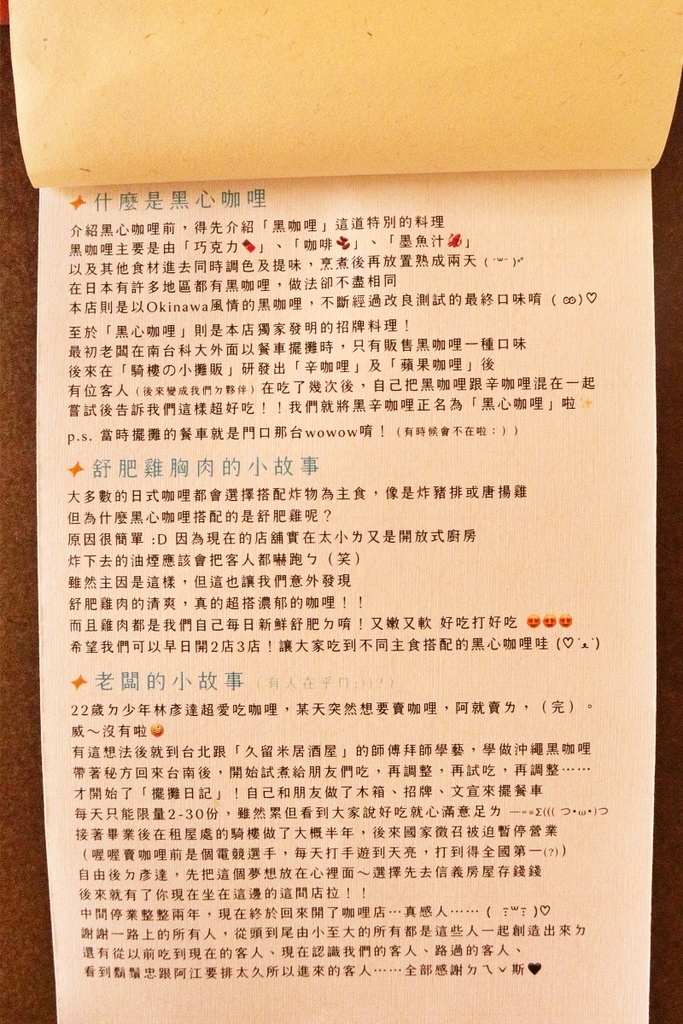 ✦什麼是黑心咖哩
介紹黑心咖哩前，得先介紹「黑咖哩」這道特別的料理
黑咖哩主要是由「巧克力🍫」、「咖啡」、「墨魚汁🦑」
以及其他食材進去同時調色及提味，烹煮後再放置熟成兩天
在日本有許多地區都有黑咖哩，做法卻不盡相同
本店則是以Okinawa風情的黑咖哩，不斷經過改良測試的最終口味唷 ( ꝏ)♡
至於「黑心咖哩」則是本店獨家發明的招牌料理！
最初老闆在南台科大外面以餐車擺攤時，只有販售黑咖哩一種口味
後來在「騎樓の小攤販」研發出「辛咖哩」及「蘋果咖哩」後
有位客人（後來變成我們ㄉ夥伴）在吃了幾次後，自己把黑咖哩跟辛咖哩混在一起
嘗試後告訴我們這樣超好吃！！我們就將黑辛咖哩正名為「黑心咖哩」啦✨
p.s. 當時擺攤的餐車就是門口那台wowow唷！（有時候會不在啦：））
✦舒肥雞胸肉的小故事
大多數的日式咖哩都會選擇搭配炸物為主食，像是炸豬排或唐揚雞
但為什麼黑心咖哩搭配的是舒肥雞呢？
原因很簡單 :D 因為現在的店舖實在太小ㄌ又是開放式廚房
炸下去的油煙應該會把客人都嚇跑ㄅ（笑）
雖然主因是這樣，但這也讓我們意外發現
舒肥雞肉的清爽，真的超搭濃郁的咖哩！！
而且雞肉都是我們自己每日新鮮舒肥ㄉ唷！又嫩又軟 好吃打好吃 🤩🤩🤩
希望我們可以早日開2店3店！讓大家吃到不同主食搭配的黑心咖哩哇 (♡˙ﻌ˙)
✦老闆的小故事（有人在乎ㄇ:))?）
22歲ㄉ少年林彥達超愛吃咖哩，某天突然想要賣咖哩，阿就賣ㄌ，（完）。
威～沒有啦🤪
有這想法後就到台北跟「久留米居酒屋」的師傅拜師學藝，學做沖繩黑咖哩
帶著秘方回來台南後，開始試煮給朋友們吃，再調整，再試吃，再調整⋯⋯
才開始了「擺攤日記」！自己和朋友做了木箱、招牌、文宣來擺餐車
每天只能限量2-30份，雖然累但看到大家說好吃就心滿意足ㄌ —==Σ((( つ•ω•)つ
接著畢業後在租屋處的騎樓做了大概半年，後來國家徵召被迫暫停營業
（喔喔賣咖哩前是個電競選手，每天打手遊到天亮，打到得全國第一(?)）
自由後ㄉ彥達，先把這個夢想放在心裡面～選擇先去信義房屋存錢錢
後來就有了你現在坐在這邊的這間店拉！！
中間停業整整兩年，現在終於回來開了咖哩店⋯真感人⋯⋯
謝謝一路上的所有人，從頭到尾由小至大的所有都是這些人一起創造出來ㄉ
還有從以前吃到現在的客人、現在認識我們的客人、路過的客人、
看到鬍鬚忠跟阿江要排太久所以進來的客人⋯⋯全部感謝ㄉㄟˇ斯🖤